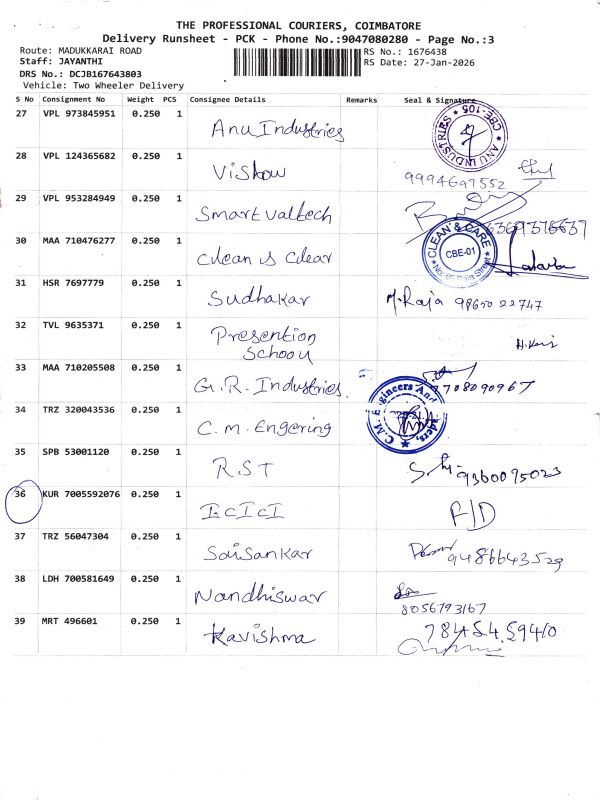 THE PROFESSIONAL COURIERS, COIMBATORE
Delivery Runsheet - PCK - Phone No.:9047080280 - Page No.:3
Route: MADUKKARAI ROAD RS No.: 1676438
Staff: JAYANTHI RS Date: 27-Jan-2026
DRS No.: DCJB167643803
Vehicle: Two Wheeler Delivery
S No Consignment No Weight PCS Consignee Details Remarks Seal & Signature
27 VPL 973845951 0.250 1 Anu Industries ANU INDUSTRIES CBE-105
28 VPL 124365682 0.250 1 Viskow 9994697552
29 VPL 953284949 0.250 1 Smart valtech
30 MAA 710476277 0.250 1 Clean is Clear CLEAN & CARE CBE-01
31 HSR 7697779 0.250 1 Sudhakar M. Raja 98650 22747
32 TVL 9635371 0.250 1 Presention
Schoou
33 MAA 710205508 0.250 1 G.R. Industries. 7708090967
34 TRZ 320043536 0.250 1 C.M. Engering C.M. Engineers And
35 SPB 53001120 0.250 1 RST 9360095023
36 KUR 7005592076 0.250 1 IcIcI F/D
37 TRZ 56047304 0.250 1 Saisankar 9486643529
38 LDH 700581649 0.250 1 Nandhiswar
8056793167
39 MRT 496601 0.250 1 Kavishma 7845459410